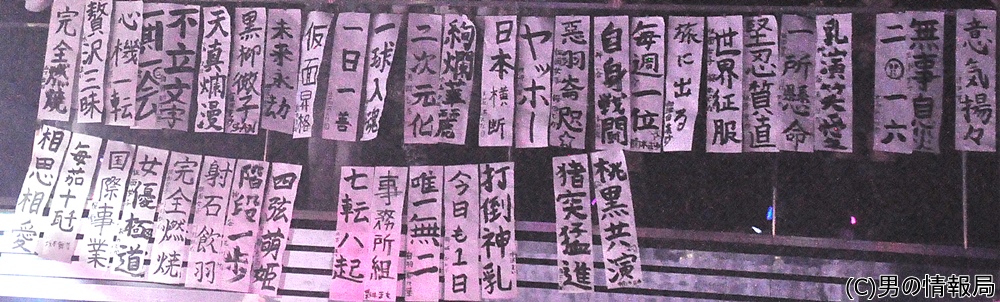 意気揚々
無事自炎
二〇一六
乳演笑愛
一所懸命
堅忍質直
世界征服
旅に出る
毎週一位
自自戦闘
惡羽崙咫
ヤッホー
日本横断
絢爛華麗
二次元化
一球入魂
一日一善
仮面昇格
未来永劫
黒柳徹子
天真爛漫
不立文字
一期一会
心機一転
贅沢三昧
完全燃焼
桃黒共演
猪突猛進
打倒神乳
今日も1日
唯一無二
事務所組
七転八起
四弦萌姫
階段一歩
射石飲羽
完全燃焼
女優極道
国際事業
毎茄十瓩
相思相愛
(C)男の情報局